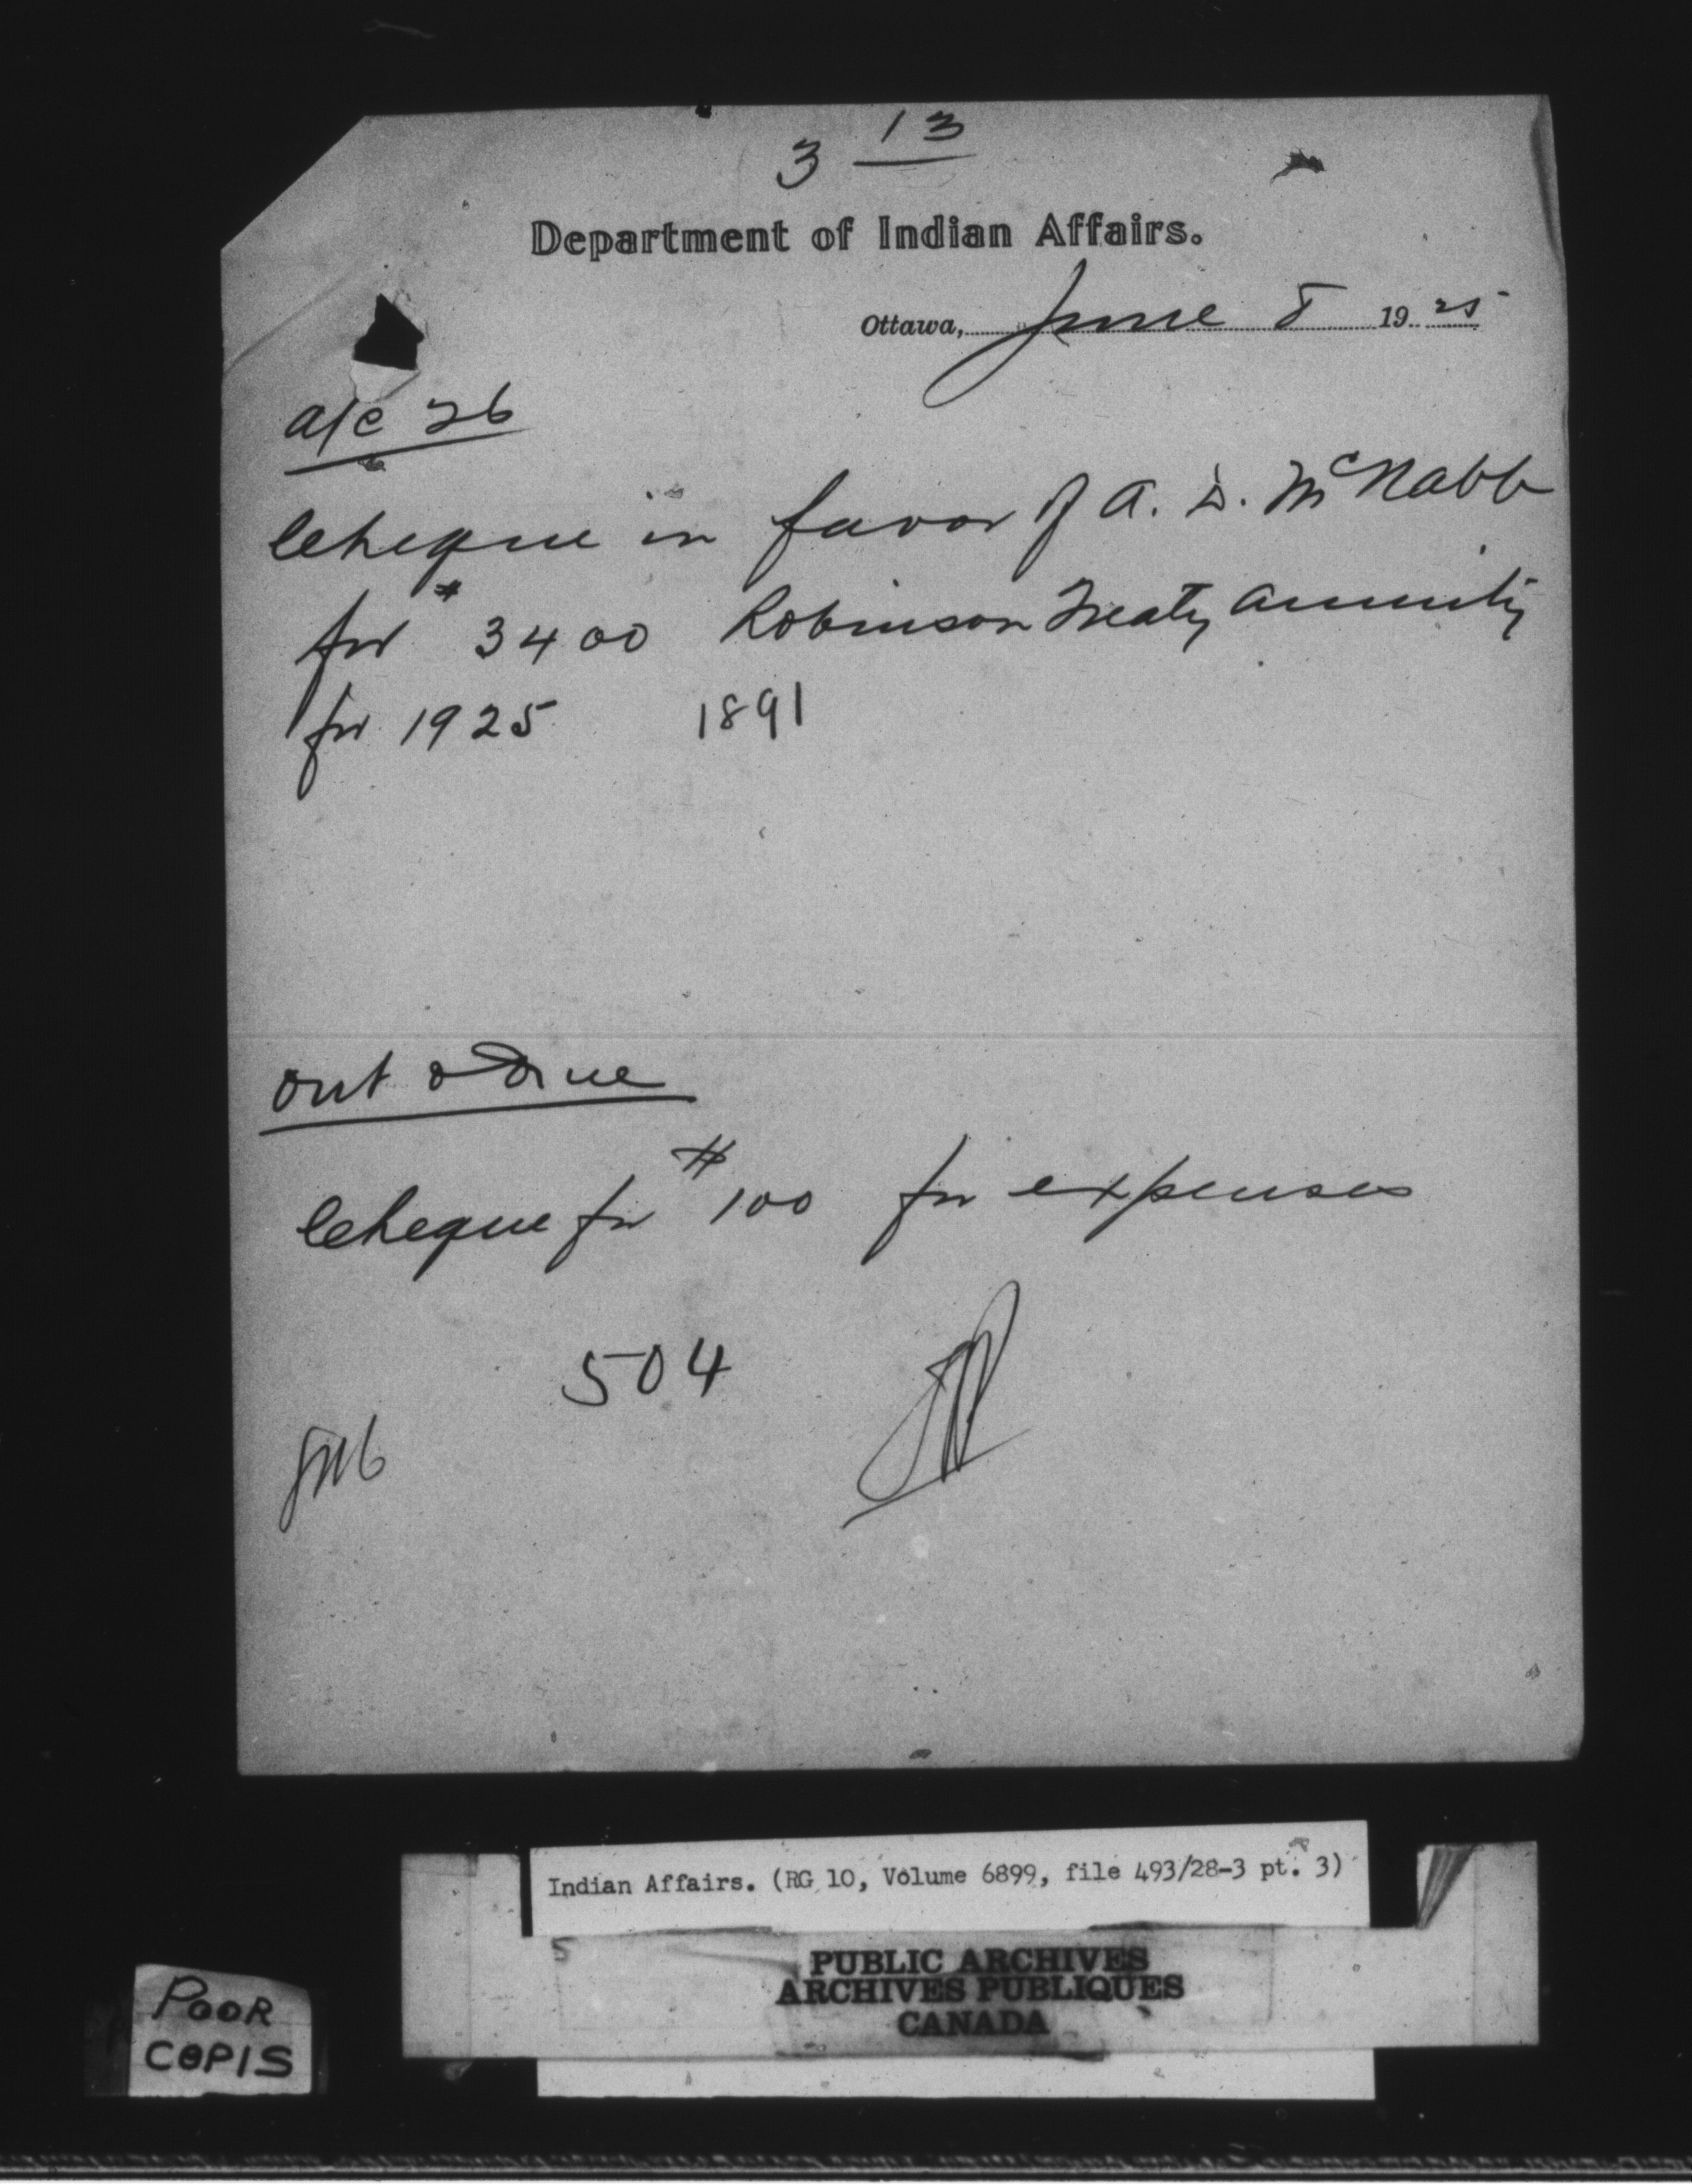 3 13
Department of Indian Affairs.
Ottawa, June 8 19 25
a/c 26
Cheque in favor of A. D. McNabb
for $ 3400 Robinson Treaty Annuity
for 1925 1891
Ont
Cheque for $ 100 for expenses
504
Indian Affairs. (RG 10, Volume 6899, file 493/28-3 pt. 3)
5
PUBLIC ARCHIVES
ARCHIVES PUBLIQUES
CANADA
POOR
COPIS